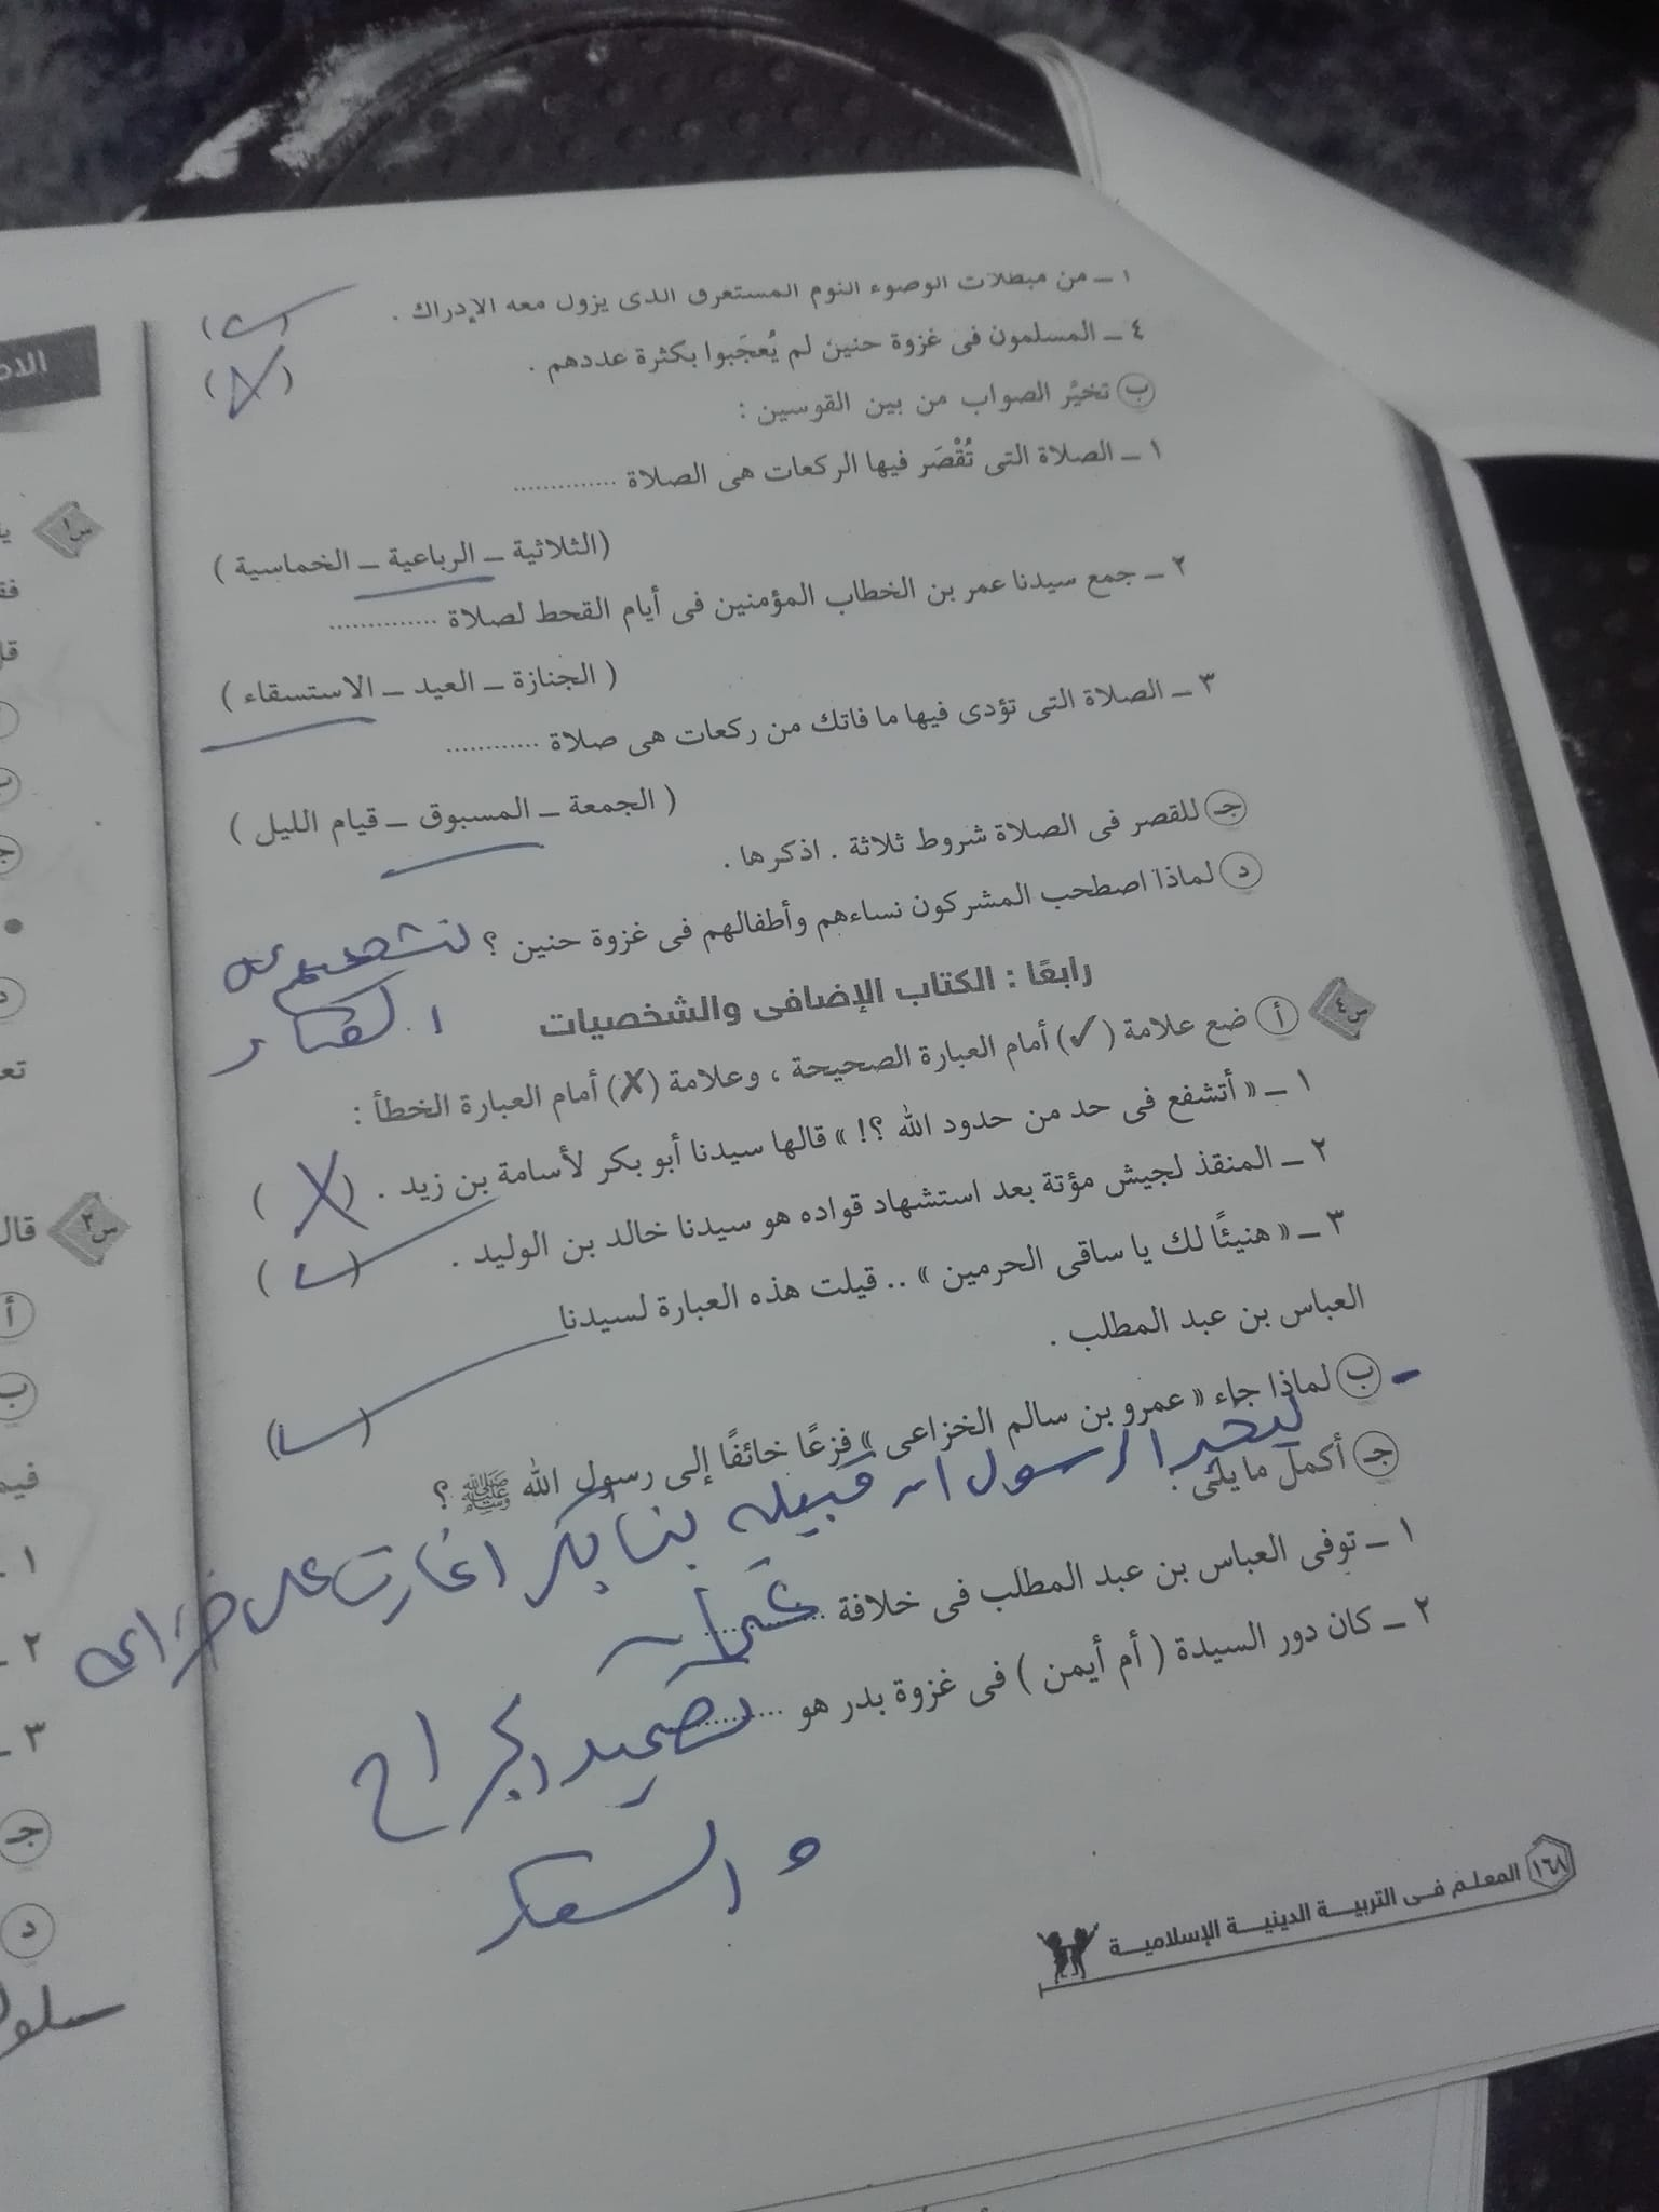 ــ من مبطلات الوضوء النوم المستغرق الذى يزول معه الإدراك .
٤ ــ المسلمون فى غزوة حنين لم يُعجَبوا بكثرة عددهم . (X)
ب تخيَّر الصواب من بين القوسين :
١ ــ الصلاة التى تُقْصَر فيها الركعات هى الصلاة ..............
(الثلاثية ــ الرباعية ــ الخماسية )
٢ ــ جمع سيدنا عمر بن الخطاب المؤمنين فى أيام القحط لصلاة ..............
( الجنازة ــ العيد ــ الاستسقاء )
٣ ــ الصلاة التى تؤدى فيها ما فاتك من ركعات هى صلاة ............
( الجمعة ــ المسبوق ــ قيام الليل )
جـ للقصر فى الصلاة شروط ثلاثة . اذكرها .
د لماذا اصطحب المشركون نساءهم وأطفالهم فى غزوة حنين ؟
رابعًا : الكتاب الإضافى والشخصيات
س٤ أ ضع علامة (✓) أمام العبارة الصحيحة ، وعلامة (X) أمام العبارة الخطأ :
١ ــ « أتشفع فى حد من حدود الله ؟! » قالها سيدنا أبو بكر لأسامة بن زيد . (X)
٢ ــ المنقذ لجيش مؤتة بعد استشهاد قواده هو سيدنا خالد بن الوليد . (✓)
٣ ــ « هنيئًا لك يا ساقى الحرمين » .. قيلت هذه العبارة لسيدنا
العباس بن عبد المطلب . (✓)
ب لماذا جاء « عمرو بن سالم الخزاعى » فزعًا خائفًا إلى رسول الله ﷺ ؟
الرسول ان قبيله بنا بكر اغارت على
جـ أكمل ما يلى :
١ ــ توفى العباس بن عبد المطلب فى خلافة .............. عثمان
٢ ــ كان دور السيدة ( أم أيمن ) فى غزوة بدر هو ............
تضميد الجراح
١٦٨ المعلم فى التربية الدينية الإسلامية
س١
س٢ قال
أ
ب
١
٢
٣
جـ
د